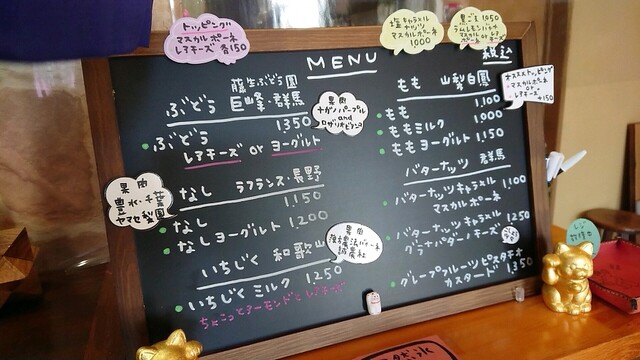 トッピング
マスカルポーネ
レアチーズ 各150
塩キャラメル
ナッツ
マスカルポーネ
1000
黒ごま 1050
MENU
税込
オススメトッピング
マスカルポーネ
or
レアチーズ
+150
藤生ぶどう園
ぶどう 巨峰・群馬
1350
果肉
ナガノパープル
and
ロザリオビアンコ
ぶどう
レアチーズ or ヨーグルト
なし ラフランス・長野
1150
果肉
豊水・千葉
ヤマセ梨園
なし
なしヨーグルト 1,200
いちじく 和歌山
果肉
いちじくミルク 1250
ちょこっとアーモンドとレアチーズ
もも 山梨白鳳
もも 1,100
ももミルク 1,000
ももヨーグルト 1,150
バターナッツ 群馬
バターナッツキャラメル 1,100
マスカルポーネ
バターナッツキャラメル 1250
グラナパダーノチーズ
グレープフルーツピスタチオ
カスタード 1,350
レジ